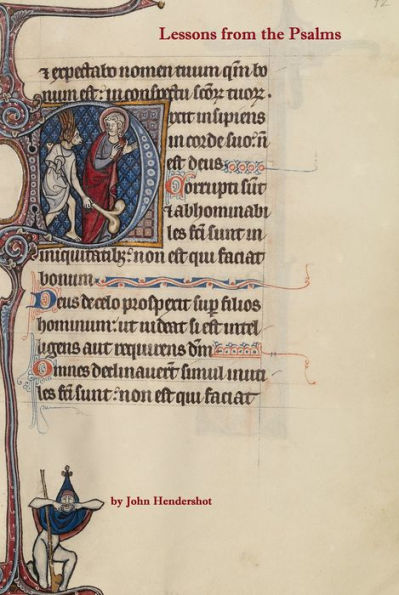 Lessons from the Psalms
⁊ expectabo nomen tuum qm̄ bo
num est: in conspectu scõꝝ tuoꝝ.
ixit insipiens
in corde suo: n̄
est deus
Corrupti sūt
⁊ abhominabi
les fc̄i sunt in
iniquitatibꝫ: non est qui faciat
bonum
Deus de celo prospexit sup̄ filios
hominum: ut uideat si est intel
ligens aut requirens dm̄
Omnes declinauer̄t simul inuti
les fc̄i sunt: non est qui faciat
by John Hendershot